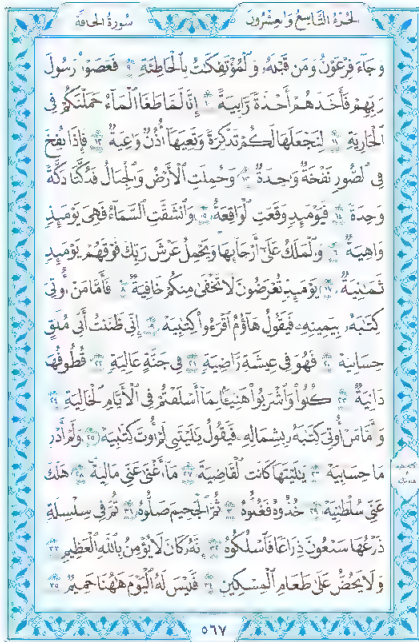 الجزء التاسع والعشرون
سورة الحاقة
وَجَآءَ فِرْعَوْنُ وَمَن قَبْلَهُۥ وَٱلْمُؤْتَفِكَٰتُ بِٱلْخَاطِئَةِ ٩ فَعَصَوْا۟ رَسُولَ
رَبِّهِمْ فَأَخَذَهُمْ أَخْذَةً رَّابِيَةً ١٠ إِنَّا لَمَّا طَغَا ٱلْمَآءُ حَمَلْنَٰكُمْ فِى
ٱلْجَارِيَةِ ١١ لِنَجْعَلَهَا لَكُمْ تَذْكِرَةً وَتَعِيَهَآ أُذُنٌ وَٰعِيَةٌ ١٢ فَإِذَا نُفِخَ
فِى ٱلصُّورِ نَفْخَةٌ وَٰحِدَةٌ ١٣ وَحُمِلَتِ ٱلْأَرْضُ وَٱلْجِبَالُ فَدُكَّتَا دَكَّةً
وَٰحِدَةً ١٤ فَيَوْمَئِذٍ وَقَعَتِ ٱلْوَاقِعَةُ ١٥ وَٱنشَقَّتِ ٱلسَّمَآءُ فَهِىَ يَوْمَئِذٍ
وَاهِيَةٌ ١٦ وَٱلْمَلَكُ عَلَىٰٓ أَرْجَآئِهَا وَيَحْمِلُ عَرْشَ رَبِّكَ فَوْقَهُمْ يَوْمَئِذٍ
ثَمَٰنِيَةٌ ١٧ يَوْمَئِذٍ تُعْرَضُونَ لَا تَخْفَىٰ مِنكُمْ خَافِيَةٌ ١٨ فَأَمَّا مَنْ أُوتِىَ
كِتَٰبَهُۥ بِيَمِينِهِۦ فَيَقُولُ هَآؤُمُ ٱقْرَءُوا۟ كِتَٰبِيَهْ ١٩ إِنِّى ظَنَنتُ أَنِّى مُلَٰقٍ
حِسَابِيَهْ ٢٠ فَهُوَ فِى عِيشَةٍ رَّاضِيَةٍ ٢١ فِى جَنَّةٍ عَالِيَةٍ ٢٢ قُطُوفُهَا
دَانِيَةٌ ٢٣ كُلُوا۟ وَٱشْرَبُوا۟ هَنِيٓـًٔۢا بِمَآ أَسْلَفْتُمْ فِى ٱلْأَيَّامِ ٱلْخَالِيَةِ ٢٤
وَأَمَّا مَنْ أُوتِىَ كِتَٰبَهُۥ بِشِمَالِهِۦ فَيَقُولُ يَٰلَيْتَنِى لَمْ أُوتَ كِتَٰبِيَهْ ٢٥ وَلَمْ أَدْرِ
مَا حِسَابِيَهْ ٢٦ يَٰلَيْتَهَا كَانَتِ ٱلْقَاضِيَةَ ٢٧ مَآ أَغْنَىٰ عَنِّى مَالِيَهْ ٢٨ هَلَكَ
عَنِّى سُلْطَٰنِيَهْ ٢٩ خُذُوهُ فَغُلُّوهُ ٣٠ ثُمَّ ٱلْجَحِيمَ صَلُّوهُ ٣١ ثُمَّ فِى سِلْسِلَةٍ
ذَرْعُهَا سَبْعُونَ ذِرَاعًا فَٱسْلُكُوهُ ٣٢ إِنَّهُۥ كَانَ لَا يُؤْمِنُ بِٱللَّهِ ٱلْعَظِيمِ ٣٣
وَلَا يَحُضُّ عَلَىٰ طَعَامِ ٱلْمِسْكِينِ ٣٤ فَلَيْسَ لَهُ ٱلْيَوْمَ هَٰهُنَا حَمِيمٌ ٣٥
٥٦٧